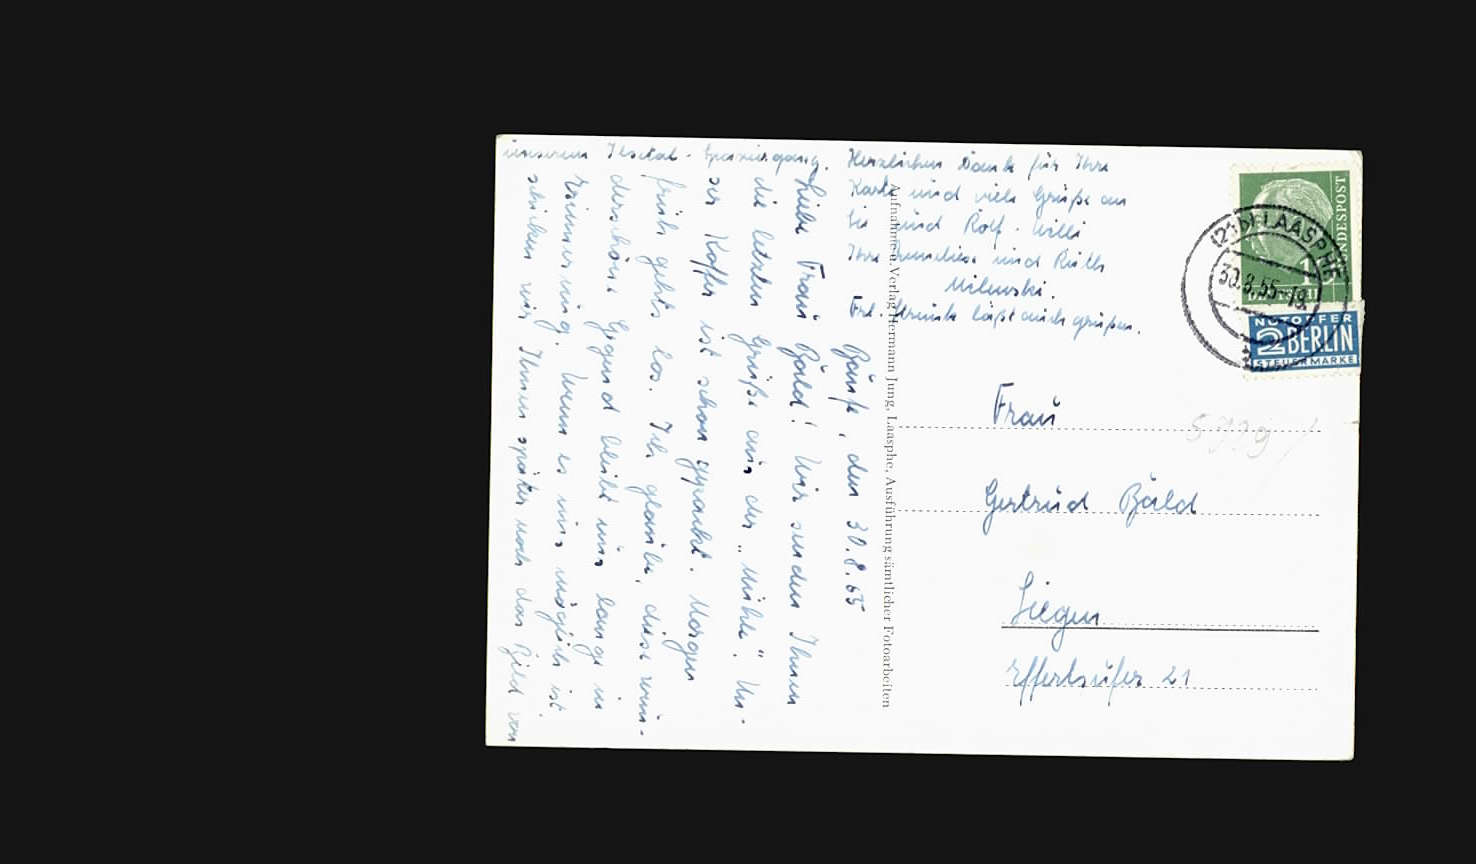 Banfe, den 30.8.55
Liebe Frau Bald! Wir senden Ihnen
die letzten Grüße aus der „Mühle". Un-
ser Koffer ist schon gepackt. Morgen
früh geht's los. Ich glaube, diese wun-
derschöne Gegend bleibt uns lange in
Erinnerung. Wenn es uns möglich ist,
schicken wir Ihnen später noch das Bild von
unserem Ilsetal-Spaziergang. Herzlichen Dank für Ihre
Karte und viele Grüße an
Sie und Rolf-Willi
Ihre Anneliese und Ruth
Milewski.
Frl. läßt auch grüßen.
Aufnahme u. Verlag Hermann Jung, Laasphe, Ausführung sämtlicher Fotoarbeiten
(21b) LAASPHE
30.8.55-19
BUNDESPOST
NOTOPFER
2 BERLIN
STEUERMARKE
Frau
Gertrud Bald
Siegen
Effertsufer 21
5929